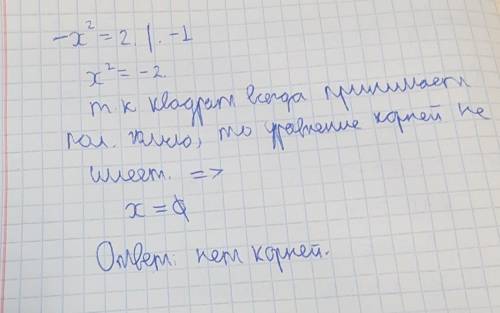 -x² = 2. |. -1
x² = -2.
т.к квадрат всегда принимает
пол. число, то уравнение корней не
имеет. =>
x = ∅
Ответ: нет корней.